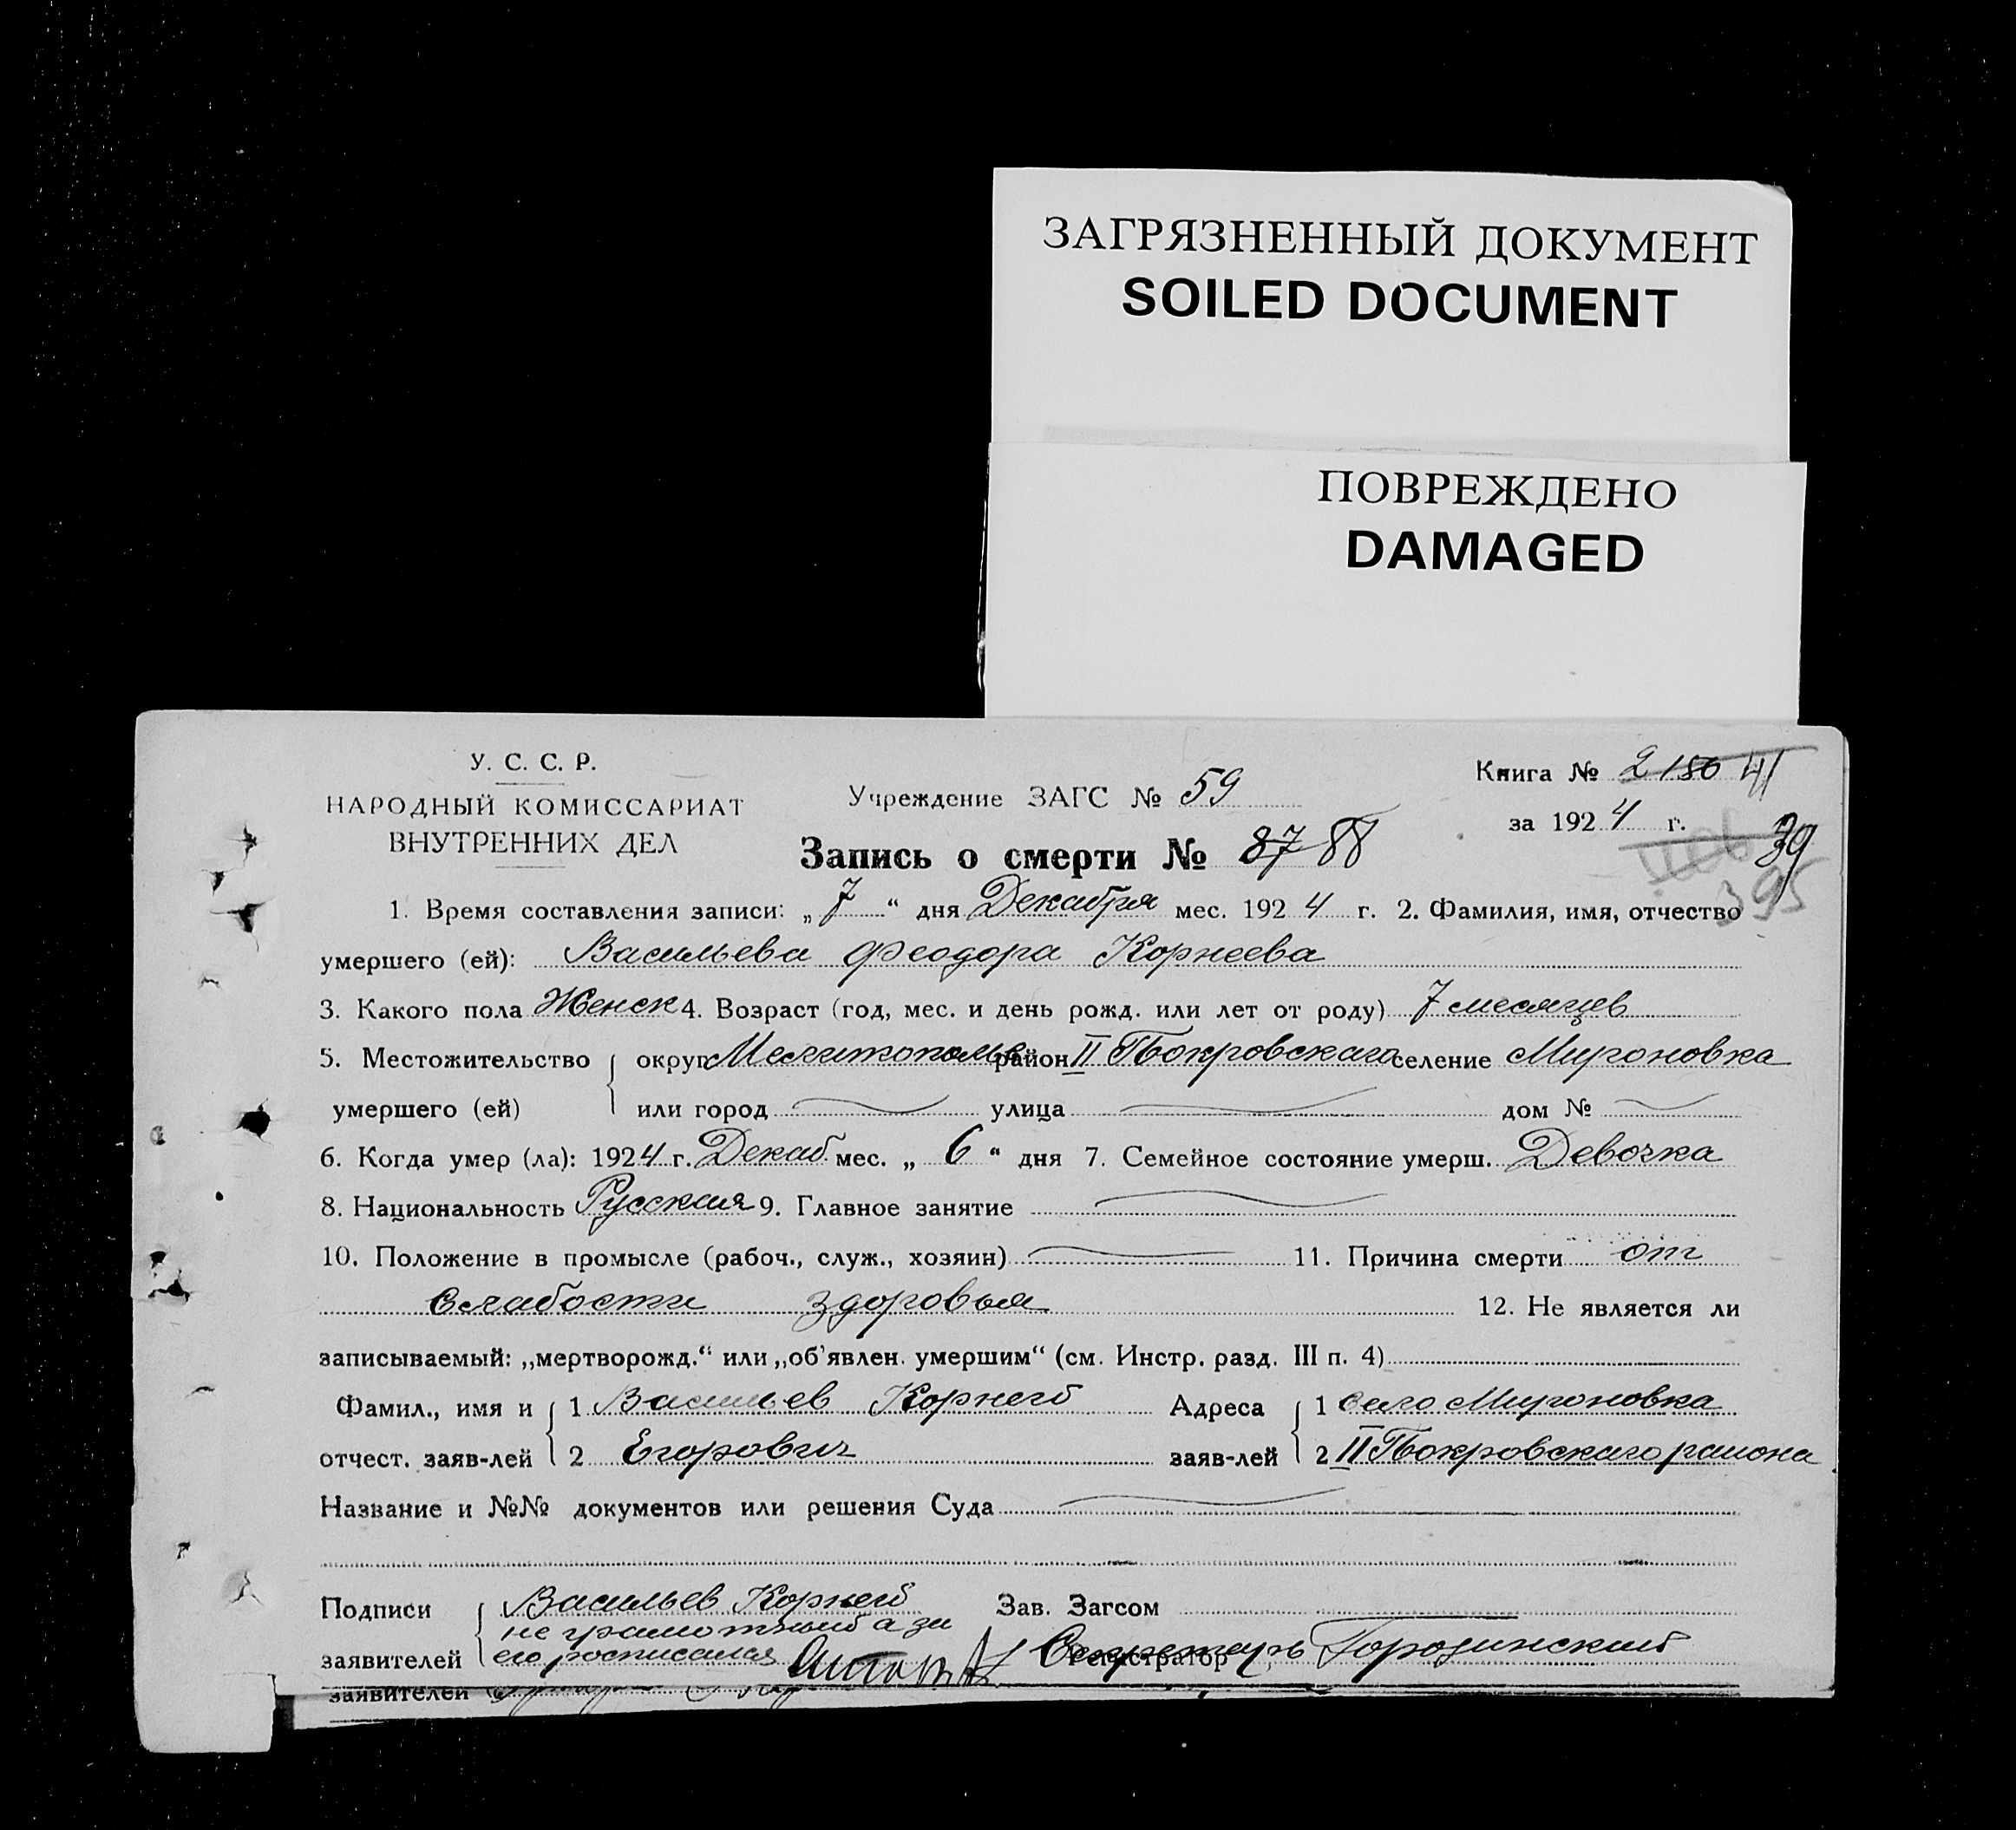 ЗАГРЯЗНЕННЫЙ ДОКУМЕНТ
SOILED DOCUMENT
ПОВРЕЖДЕНО
DAMAGED
У. С. С. Р.
НАРОДНЫЙ КОМИССАРИАТ
ВНУТРЕННИХ ДЕЛ
Учреждение ЗАГС № 59
Книга № 2 180 41
за 1924 г.
39
395
Запись о смерти № 87 88
1. Время составления записи: „7“ дня Декабря мес. 1924 г. 2. Фамилия, имя, отчество
умершего (ей): Васильева Феодора Корнеева
3. Какого пола Женск 4. Возраст (год, мес. и день рожд. или лет от роду) 7 месяцев
5. Местожительство округ Мелитополье район II Покровскаго селение Мироновка
умершего (ей) или город улица дом №
6. Когда умер (ла): 1924 г. Декаб. мес. „6“ дня 7. Семейное состояние умерш. Девочка
8. Национальность Русская 9. Главное занятие
10. Положение в промысле (рабоч., служ., хозяин) 11. Причина смерти от
Слабости здоровья 12. Не является ли
записываемый: „мертворожд.“ или „об'явлен. умершим“ (см. Инстр. разд. III п. 4)
Фамил., имя и 1 Васильев Корней Адреса 1 Село Мироновка
отчест. заяв-лей 2 Егорович заяв-лей 2 II Покровскаго раиона
Название и №№ документов или решения Суда
Подписи Васильев Корней Зав. Загсом
не грамотный а за
заявителей его росписался Регистратор Секретарь Городинский
заявителей